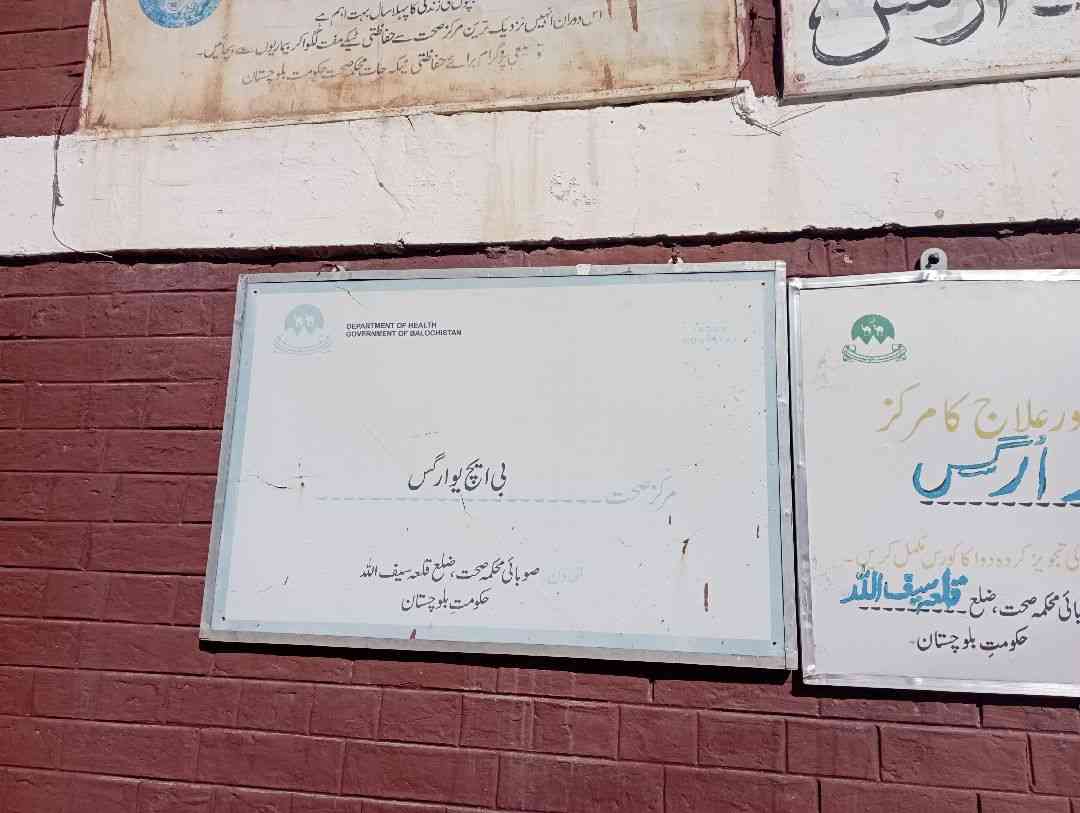 بچوں کی زندگی کا پہلا سال بہت اہم ہے
اس دوران انہیں نزدیک ترین مرکز صحت سے حفاظتی ٹیکے مفت لگوا کر بیماریوں سے بچائیں۔
توسیعی پروگرام برائے حفاظتی ٹیکہ جات محکمہ صحت حکومت بلوچستان
DEPARTMENT OF HEALTH
GOVERNMENT OF BALOCHISTAN
مرکز صحت بی ایچ یو ارگس
صوبائی محکمہ صحت، ضلع قلعہ سیف اللہ
حکومتِ بلوچستان
ور علاج کا مرکز
ارگس
تجویز کردہ دوا کا کورس مکمل کریں۔
بائی محکمہ صحت، ضلع قلعہ سیف اللہ
حکومتِ بلوچستان۔